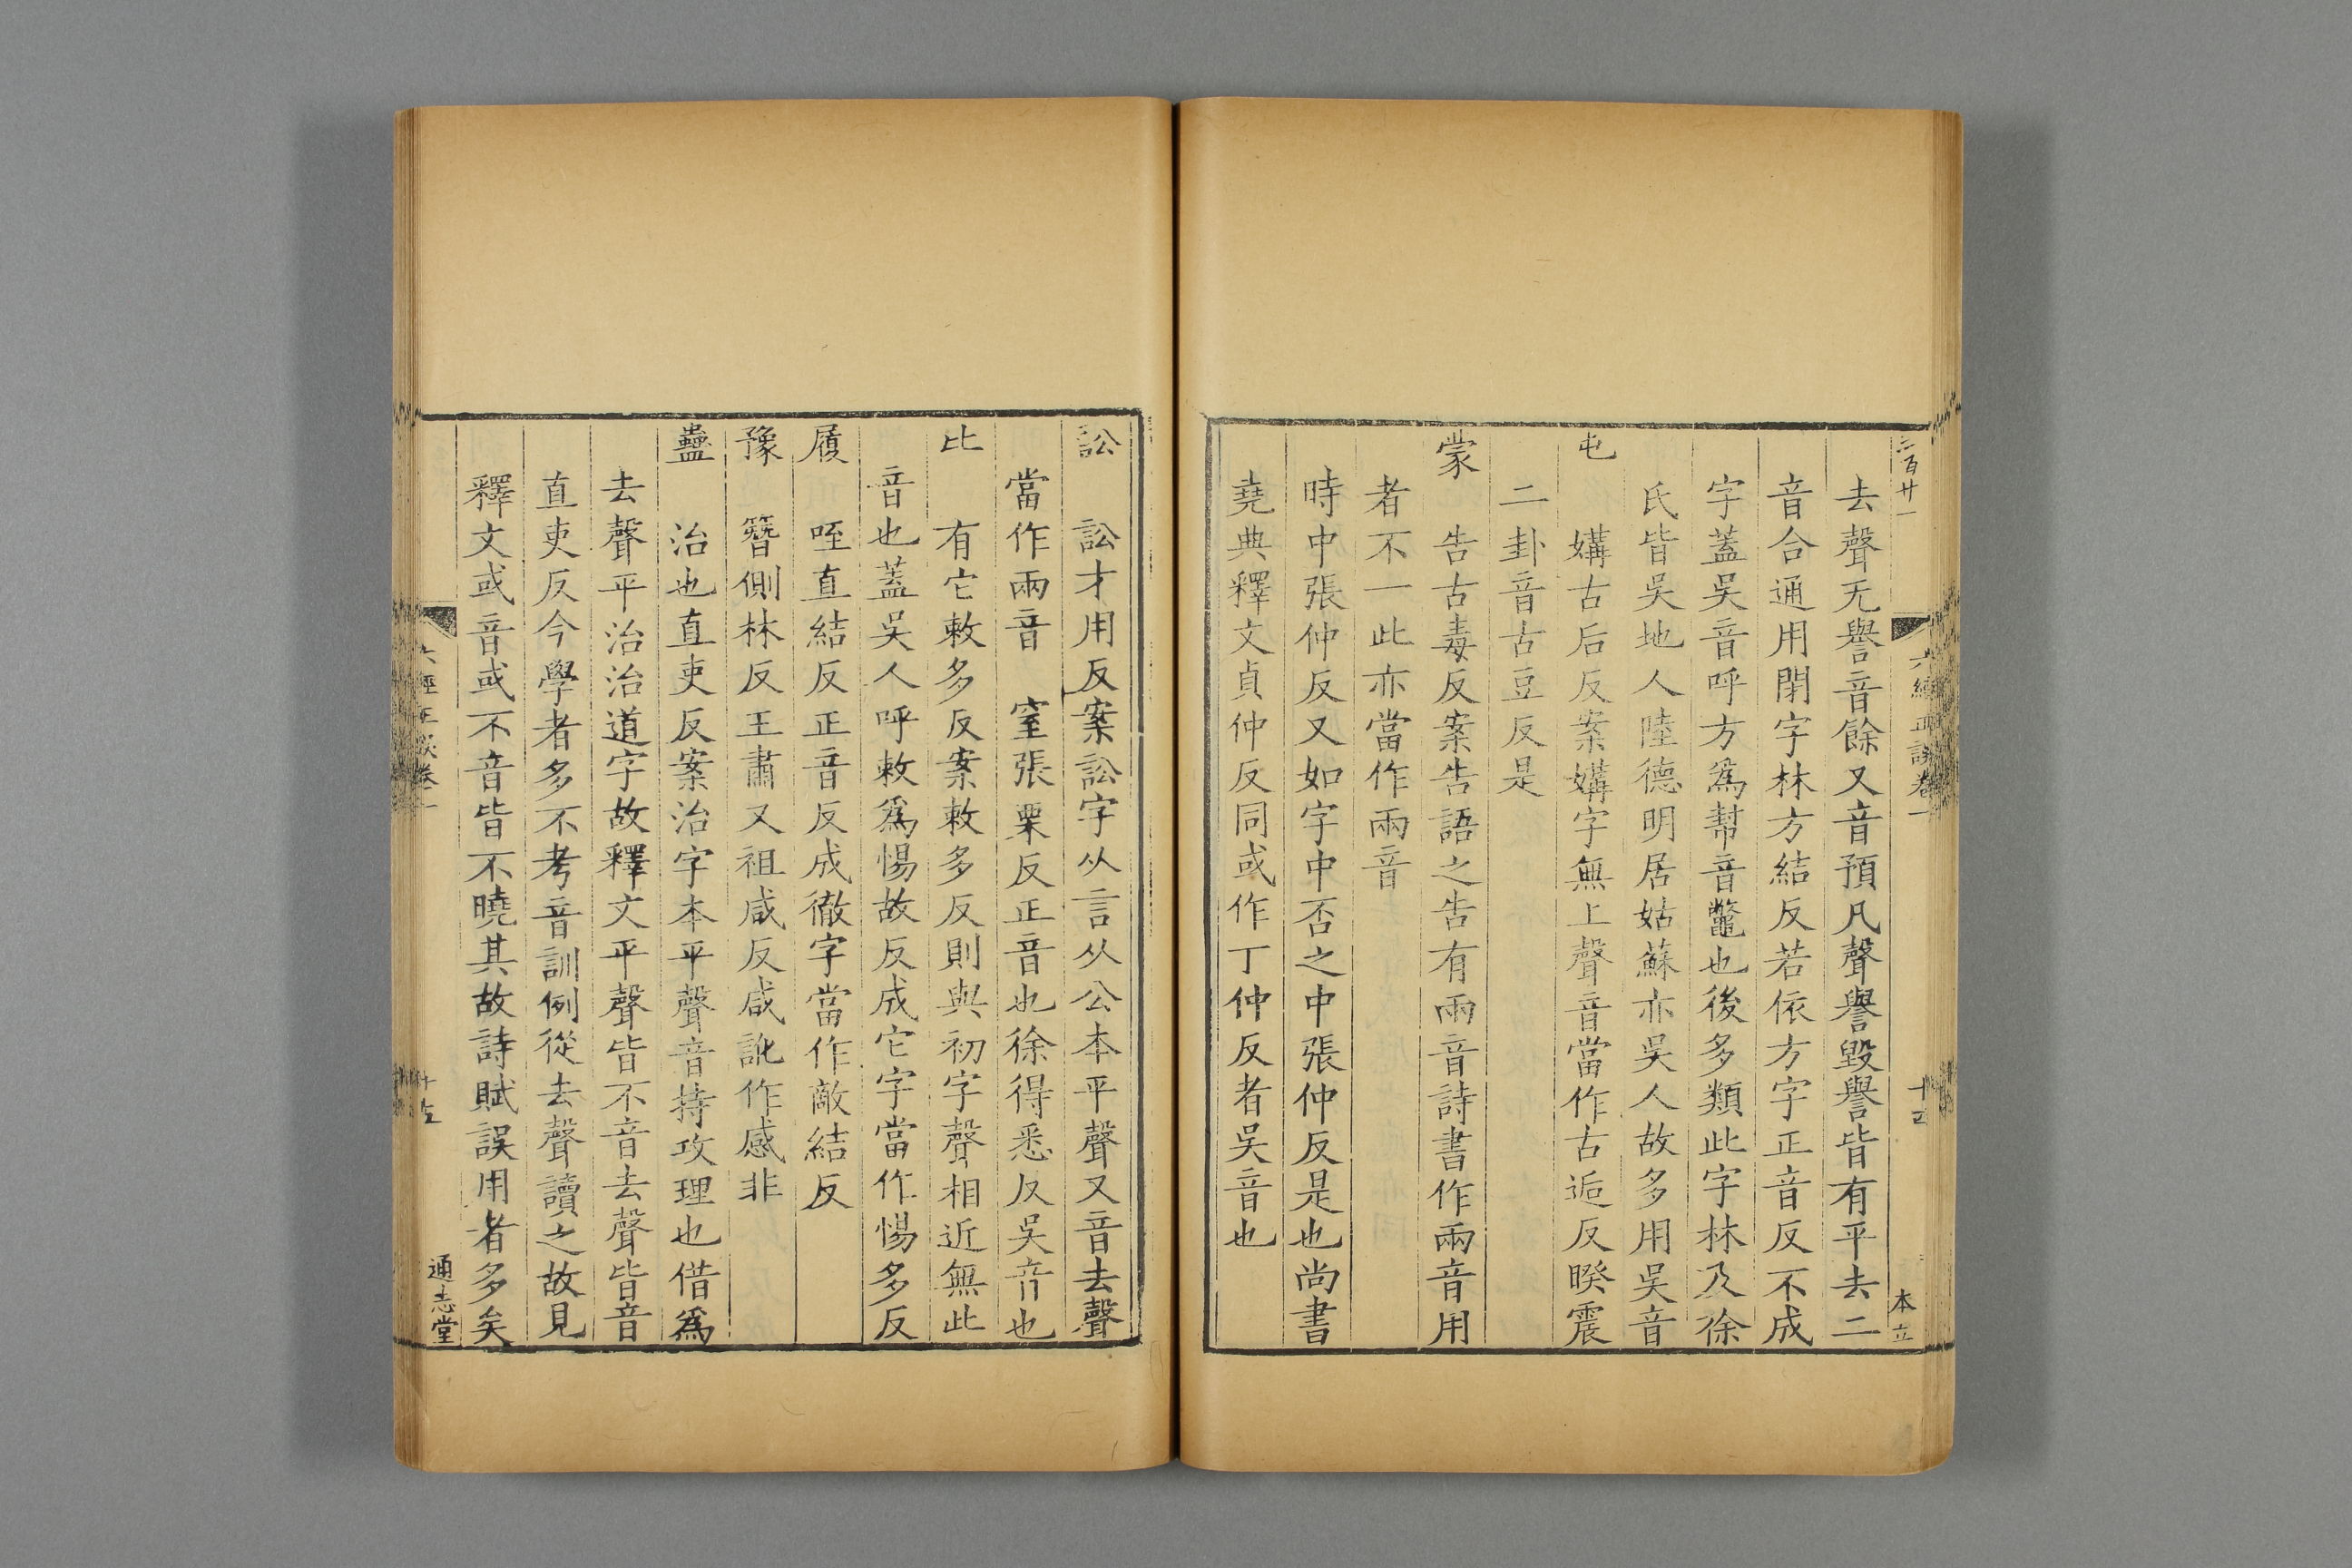 三百廿一
六經正誤卷一
本立
去聲无譽音餘又音預凡聲譽毀譽皆有平去二
音合通用閉字林方結反若依方字正音反不成
字蓋吳音呼方為幫音鼈也後多類此字林及徐
氏皆吳地人陸德明居姑蘇亦吳人故多用吳音
屯
媾古后反案媾字無上聲音當作古逅反睽震
二卦音古豆反是
蒙
告古毒反案告語之告有兩音詩書作兩音用
者不一此亦當作兩音
時中張仲反又如字中否之中張仲反是也尚書
堯典釋文貞仲反同或作丁仲反者吳音也
訟
訟才用反案訟字从言从公本平聲又音去聲
當作兩音 窒張栗反正音也徐得悉反吳音也
比
有它敕多反案敕多反則與初字聲相近無此
音也蓋吳人呼敕爲惕故反成它字當作惕多反
履
咥直結反正音反成徹字當作敵結反
豫
簪側林反王肅又祖咸反咸訛作感非
蠱
治也直吏反案治字本平聲音持攻理也借爲
去聲平治治道字故釋文平聲皆不音去聲皆音
直吏反今學者多不考音訓例從去聲讀之故見
釋文或音或不音皆不曉其故詩賦誤用者多矣
六經正誤卷一
通志堂